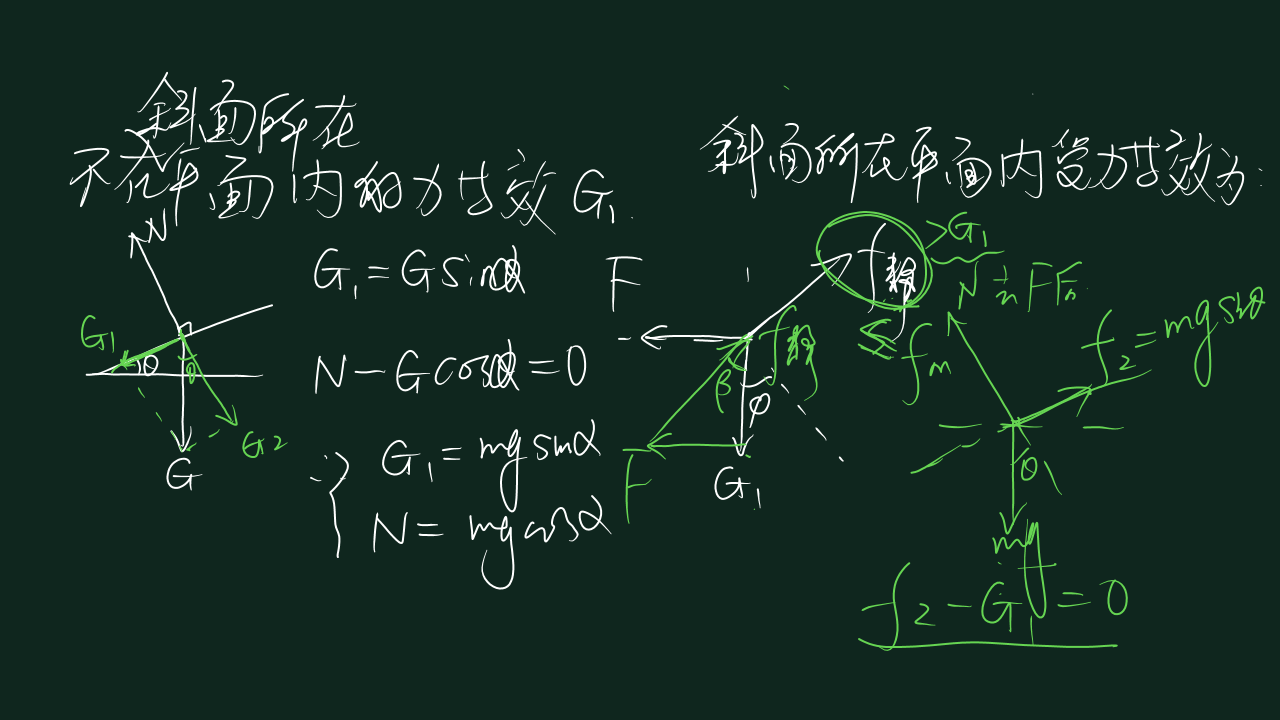 斜面所在
不在平面内的力等效G₁
N
G₁
θ
θ
G₂
G
G₁=Gsinα
N-Gcosα=0
∴{ G₁=mgsinα
N=mgcosα
斜面所在平面内受力等效为:
F
f静
>G₁
≤fm
f静
β
φ
F
G₁
N
f₂=mgsinθ
θ
mg
f₂-G₁=0